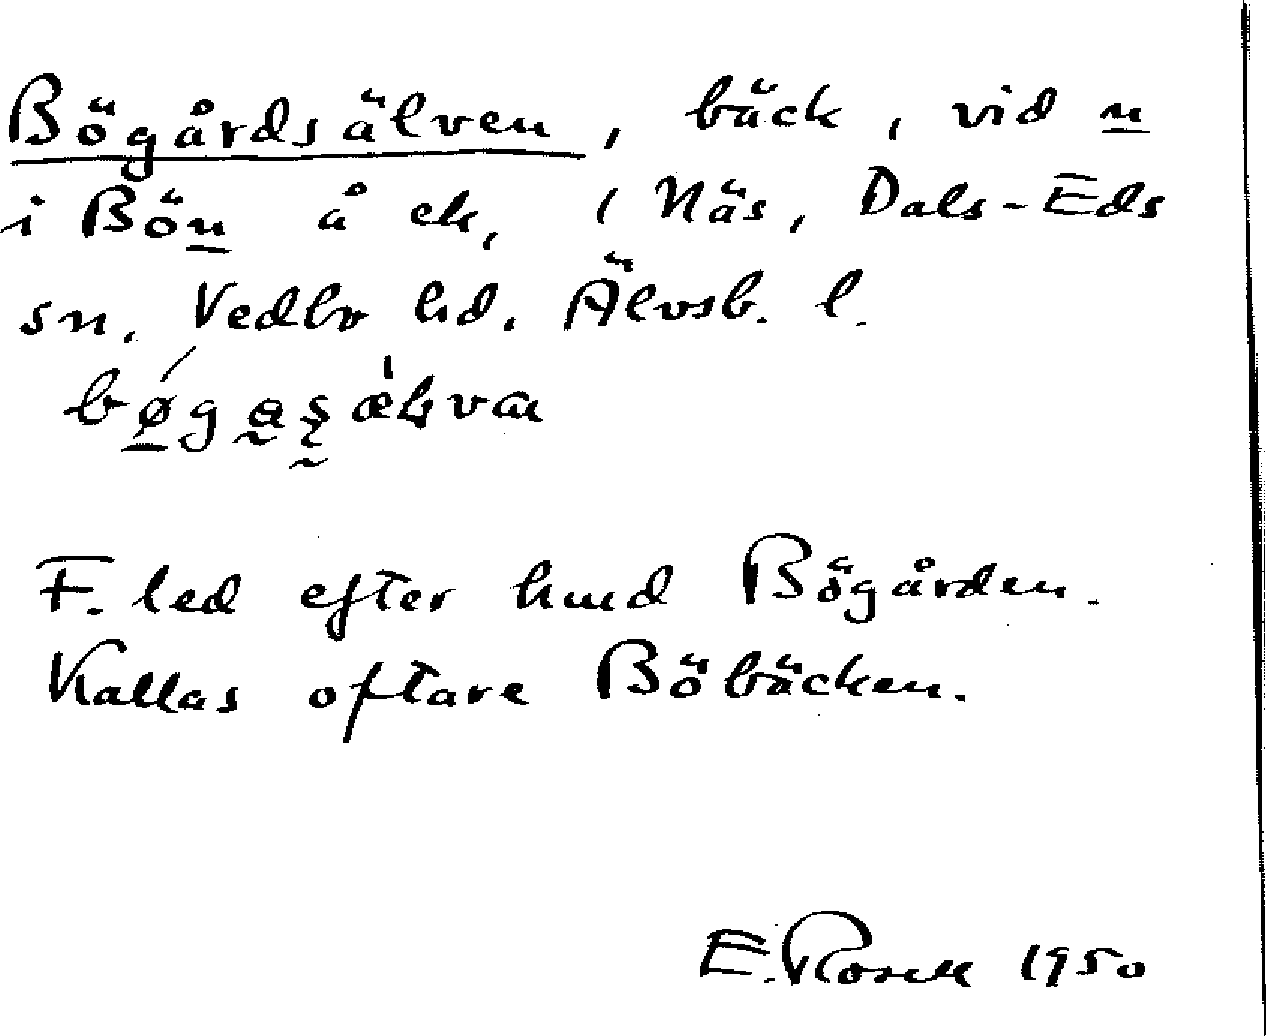 Bögårdsälven, bäck, vid n
i Bön å ek, i Näs, Dals-Eds
sn, Vedbo hd, Älvsb. l.
F. led efter hmd Bögården.
Kallas oftare Böbäcken.
E. Rosell 1950